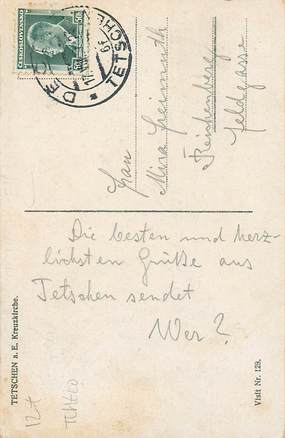 ČESKOSLOVENSKO
50
TETSCHEN
Frau
Mira
Reichenberg
Feldgasse
Die besten und herz-
lichsten Grüße aus
Tetschen sendet
Wer?
TETSCHEN a. E. Kreuzkirche.
Visit Nr. 128.